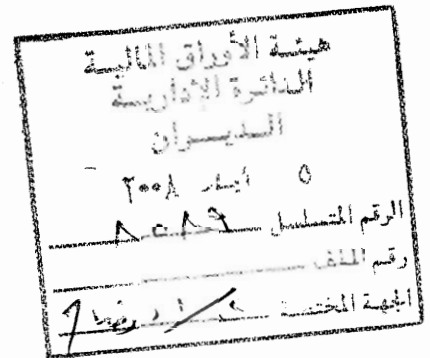 هيئة الأوراق المالية
الدائرة الإدارية
الديوان
٥ أيار ٢٠٠٨
الرقم المتسلسل
رقم الملف
الجهة المختصة